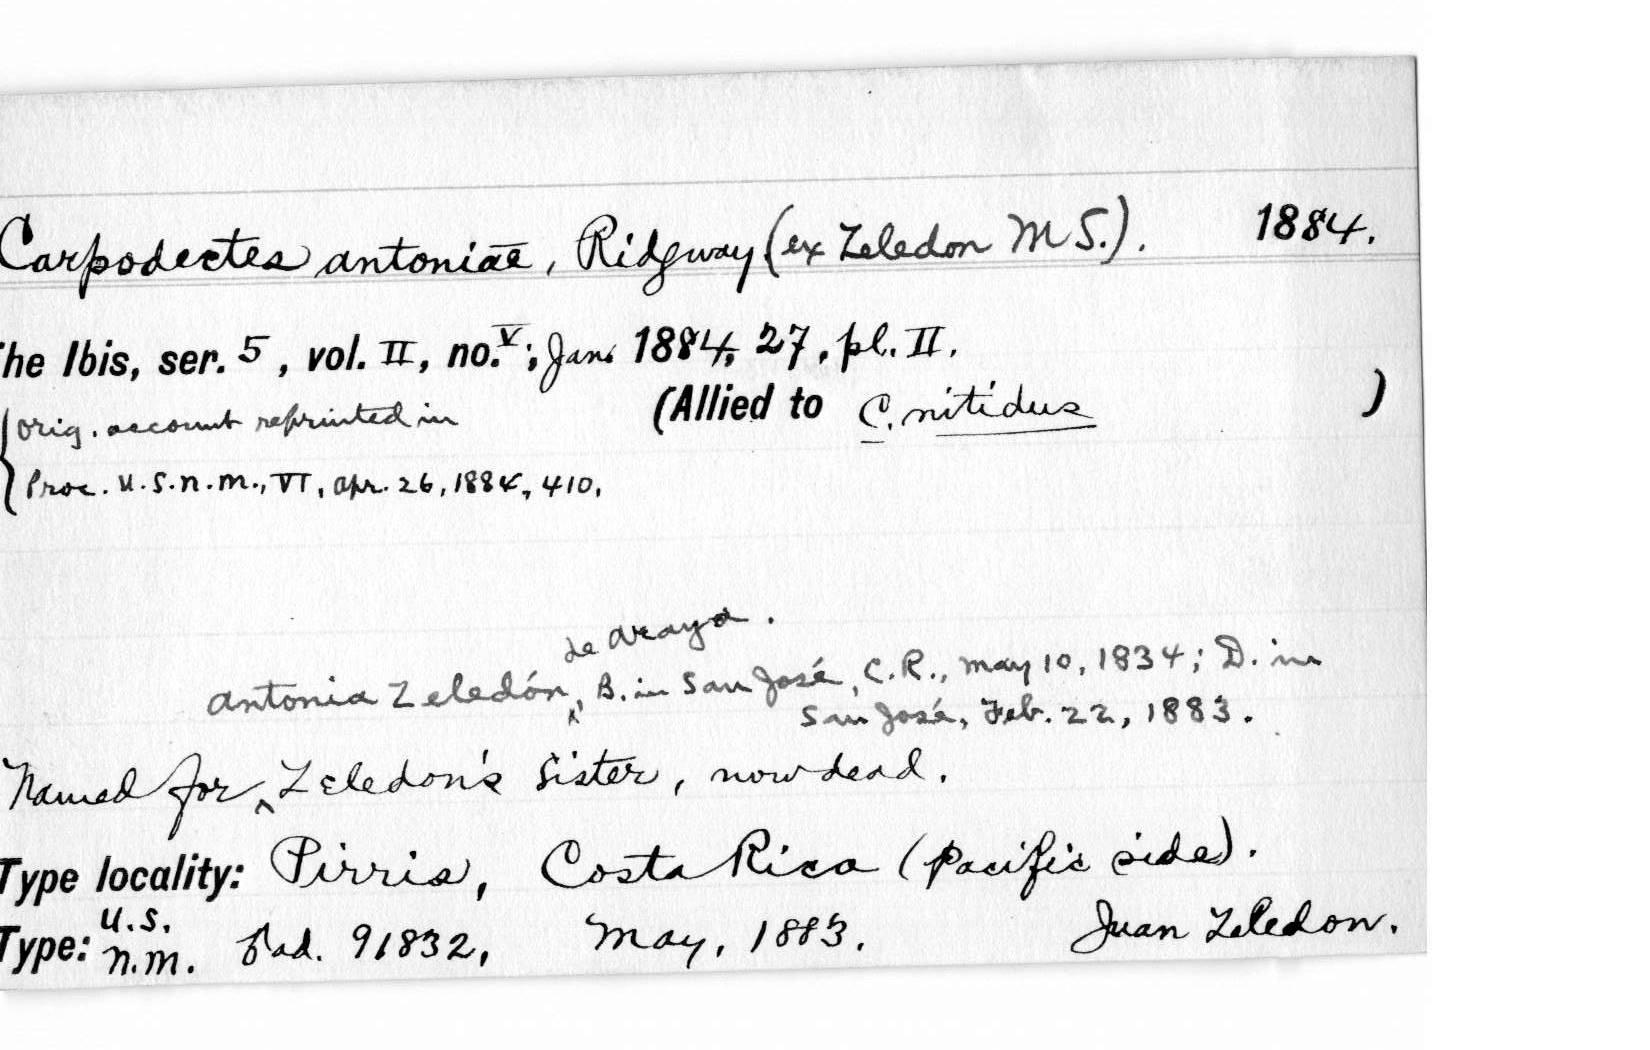 Carpodectes antoniae, Ridgway (ex Zeledon MS.). 1884.
The Ibis, ser. 5, vol. II, no. V; Jan. 1884, 27, pl. II.
(Allied to C. nitidus )
Orig. account reprinted in
Proc. U.S.N.M., VI, Apr. 26, 1884, 410.
de Araya.
Antonia Zeledón ‸, B. in San José, C.R., May 10, 1834; D. in
San José, Feb. 22, 1883.
Named for ‸ Zeledon's sister, now dead.
Type locality: Pirris, Costa Rica (Pacific side).
Type: U.S.N.M. ♂ ad. 91832, May, 1883. Juan Zeledon.